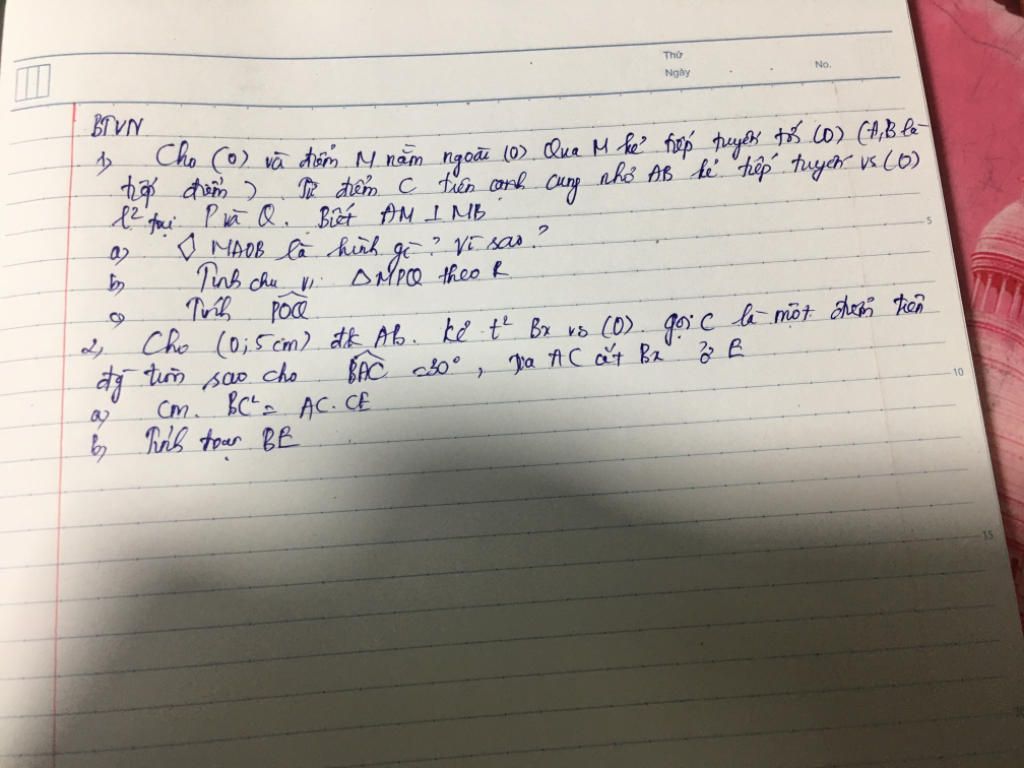 Thứ
Ngày . . No.
BTVN
1, Cho (O) và điểm M nằm ngoài (O). Qua M kẻ tiếp tuyến tới (O) (A,B là
tiếp điểm). Từ điểm C trên cung nhỏ AB kẻ tiếp tuyến vs (O)
l² tại P và Q. Biết AM ⊥ MB
a) MAOB là hình gì? Vì sao?
b, Tính chu vi ΔMPQ theo R
c) Tính POQ
2, Cho (O; 5cm) đk AB. kẻ t² Bx vs (O). gọi C là một điểm trên
đg tròn sao cho BAC = 30°, tia AC cắt Bx ở E
a) Cm. BC² = AC.CE
b, Tính BE
5
10
15